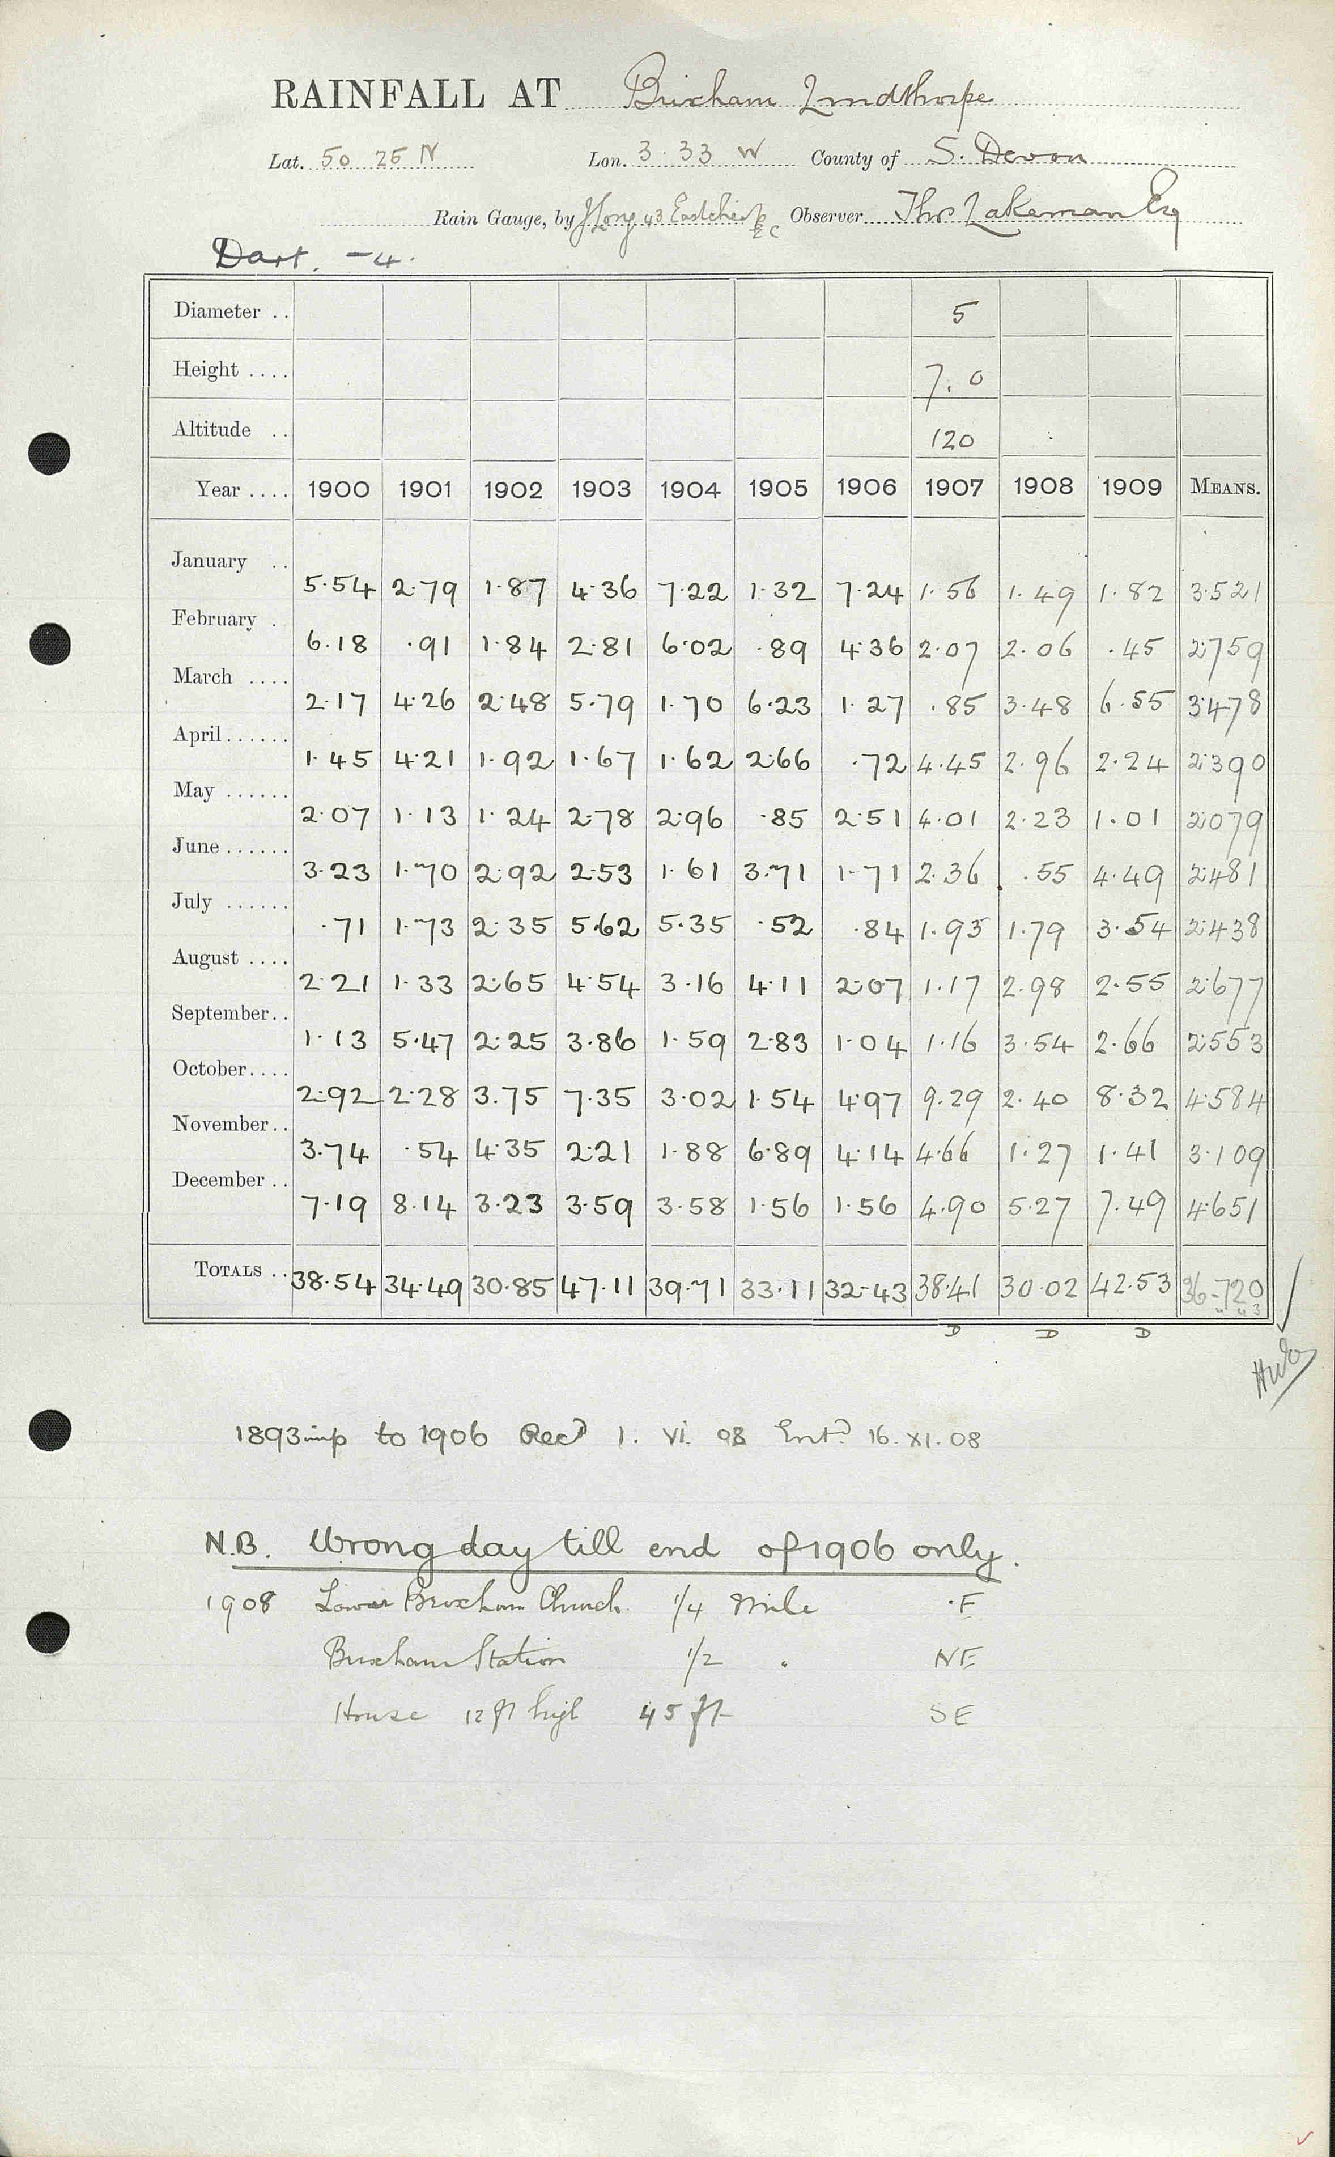 RAINFALL AT Brixham Lindthorpe
Lat. 50 25 N Lon. 3 33 W County of S. Devon
Rain Gauge, by J Long 43 Eastcheap EC Observer Thos Lakeman Esq
Dart. -4.
Diameter .. 5
Height .... 7.0
Altitude .. 120
Year .... 1900 1901 1902 1903 1904 1905 1906 1907 1908 1909 MEANS.
January .. 5.54 2.79 1.87 4.36 7.22 1.32 7.24 1.56 1.49 1.82 3.521
February . 6.18 .91 1.84 2.81 6.02 .89 4.36 2.07 2.06 .45 2.759
March .... 2.17 4.26 2.48 5.79 1.70 6.23 1.27 .85 3.48 6.55 3.478
April...... 1.45 4.21 1.92 1.67 1.62 2.66 .72 4.45 2.96 2.24 2.390
May ...... 2.07 1.13 1.24 2.78 2.96 .85 2.51 4.01 2.23 1.01 2.079
June...... 3.23 1.70 2.92 2.53 1.61 3.71 1.71 2.36 .55 4.49 2.481
July ...... .71 1.73 2.35 5.62 5.35 .52 .84 1.93 1.79 3.54 2.438
August .... 2.21 1.33 2.65 4.54 3.16 4.11 2.07 1.17 2.98 2.55 2.677
September.. 1.13 5.47 2.25 3.86 1.59 2.83 1.04 1.16 3.54 2.66 2.553
October.... 2.92 2.28 3.75 7.35 3.02 1.54 4.97 9.29 2.40 8.32 4.584
November.. 3.74 .54 4.35 2.21 1.88 6.89 4.14 4.66 1.27 1.41 3.109
December .. 7.19 8.14 3.23 3.59 3.58 1.56 1.56 4.90 5.27 7.49 4.651
TOTALS .. 38.54 34.49 30.85 47.11 39.71 33.11 32.43 38.41 30.02 42.53 36.720
D D D
1893 imp to 1906 Recd 1. VI. 08 Entd 16. XI. 08
N.B. Wrong day till end of 1906 only.
1908 Lower Brixham Church 1/4 Mile .E
Brixham Station 1/2 " NE
House 12 ft high 45 ft SE